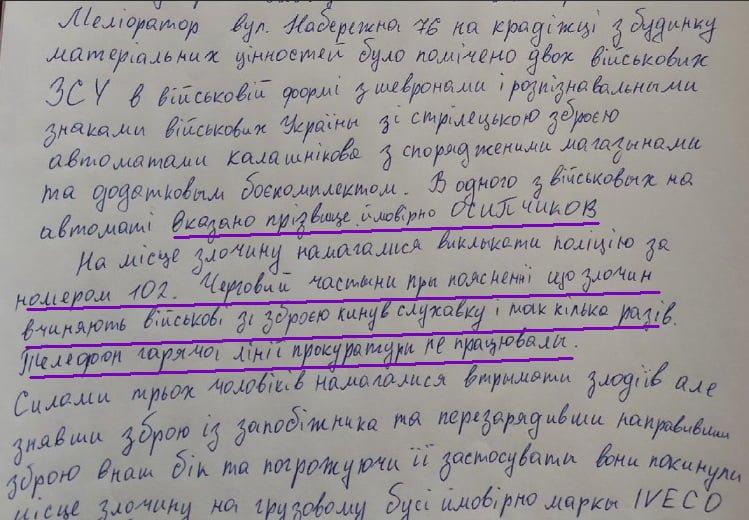 Меліоратор вул. Набережна 76 на крадіжці з будинку
матеріальних цінностей було помічено двох військових
ЗСУ в військовій формі з шевронами і розпізнавальными
знаками військових Украіны зі стрілецькою зброєю
автоматами калашнікова з спорядженими магазынами
та додатковым боєкомплектом. В одного з військовых на
автоматі вказано прізвище ймовірно ОСИПЧИКОВ
На місце злочину намагалися виклыкати поліцію за
номером 102. Черговий частыни пры поясненні що злочин
вчиняють військові зі зброєю кинув слухавку і так кілька разів.
Телефон гарячої лінії прокуратуры не працювалы.
Силами трьох чоловіків намагалися втрымати злодіїв але
знявши зброю із запобіжника та перезарядивши направивши
зброю в наш бік та погрожуючи її застосувати вони покинули
місце злочину на грузовому бусі ймовірно маркы IVECO